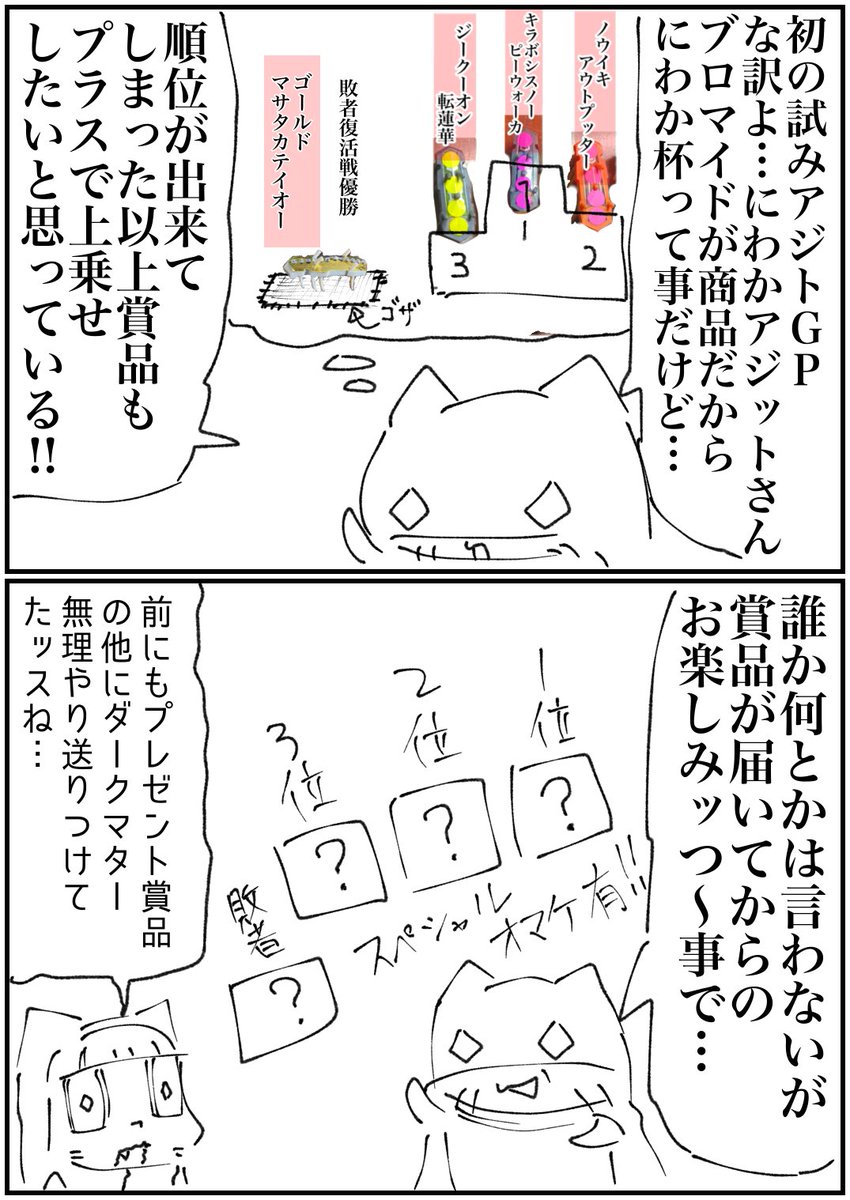 初の試みアジトGP
な訳よ…にわかアジットさん
ブロマイドが商品だから
にわか杯って事だけど…
ノウイキ
アウトプッター
キラボシスノー
ピーウォーカ
ジークーオン
転蓮華
1
2
3
敗者復活戦優勝
ゴールド
マサタカテイオー
ゴザ
順位が出来て
しまった以上賞品も
プラスで上乗せ
したいと思っている!!
誰か何とかは言わないが
賞品が届いてからの
お楽しみッつ〜事で…
1位
?
2位
?
3位
?
敗者
?
スペシャルオマケ有!!
前にもプレゼント賞品
の他にダークマター
無理やり送りつけて
たッスね…